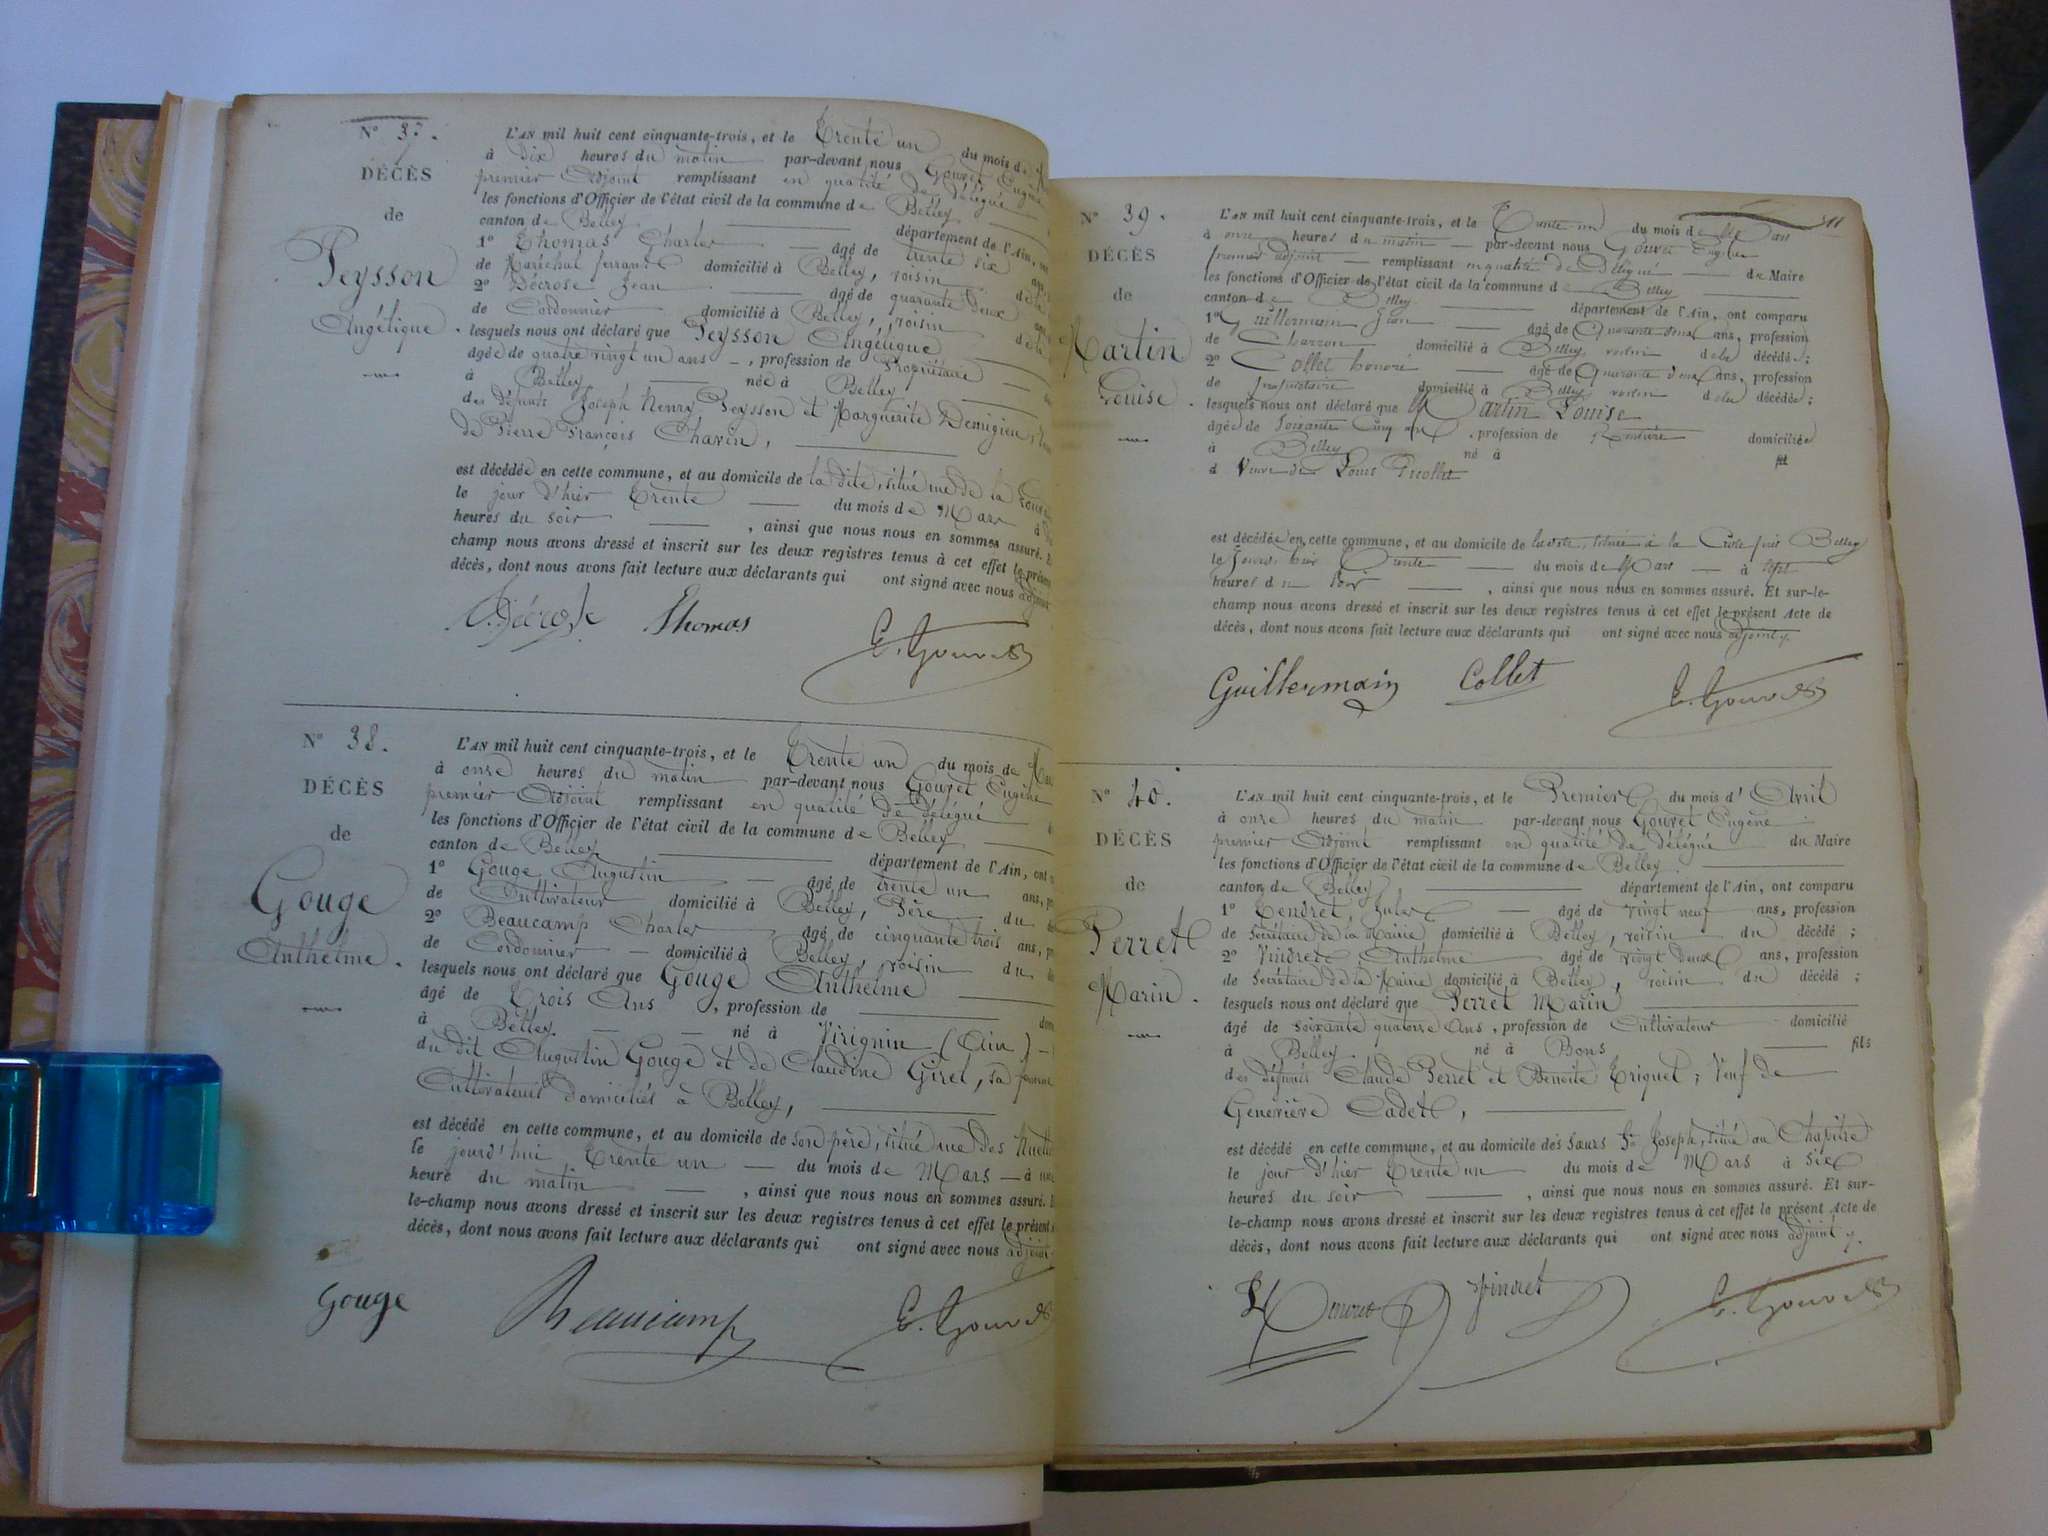 N° 37.
DÉCÈS
de
Peysson
Angélique.
L'AN mil huit cent cinquante-trois, et le Trente un du mois de
à Dix heures du matin par-devant nous Gouvet Eugène
premier Adjoint remplissant en qualité de délégué
les fonctions d'Officier de l'état civil de la commune de Belley
canton de Belley département de l'Ain,
1° Thomas Charles âgé de trente six
de Maréchal ferrant domicilié à Belley, voisin
2° Décrose Jean âgé de quarante deux
de Cordonnier domicilié à Belley, voisin
lesquels nous ont déclaré que Peysson Angélique
âgée de quatre vingt un ans, profession de Propriétaire
à Belley née à Belley
des défunts Joseph Henry Peysson et Marguerite Demigieu,
de Pierre François Chavin,
est décédée en cette commune, et au domicile de la dite, situé rue de la
le jour d'hier trente du mois de Mars à
heures du soir, ainsi que nous nous en sommes assuré.
champ nous avons dressé et inscrit sur les deux registres tenus à cet effet le présent
décès, dont nous avons fait lecture aux déclarants qui ont signé avec nous adjoint
Décrose Thomas E. Gouvet
N° 38.
DÉCÈS
de
Gouge
Anthelme.
L'AN mil huit cent cinquante-trois, et le Trente un du mois de
à onze heures du matin par-devant nous Gouvet Eugène
premier Adjoint remplissant en qualité de délégué
les fonctions d'Officier de l'état civil de la commune de Belley
canton de Belley département de l'Ain, ont
1° Gouge Augustin âgé de trente un ans,
de Cultivateur domicilié à Belley, Père du
2° Beaucamp Charles âgé de cinquante trois ans,
de Cordonnier domicilié à Belley, voisin du
lesquels nous ont déclaré que Gouge Anthelme
âgé de Trois Ans, profession de
à Belley né à Virignin (Ain)
du dit Augustin Gouge et de Claudine Girel, sa femme
Cultivateurs domiciliés à Belley,
est décédé en cette commune, et au domicile de son père, situé rue des
le jourd'hui trente un du mois de Mars à une
heure du matin, ainsi que nous nous en sommes assuré.
le-champ nous avons dressé et inscrit sur les deux registres tenus à cet effet le présent
décès, dont nous avons fait lecture aux déclarants qui ont signé avec nous adjoint
Gouge Beaucamp E. Gouvet
11
N° 39.
DÉCÈS
de
Martin
Louise.
L'AN mil huit cent cinquante-trois, et le Trente un du mois de Mars
à onze heures du matin par-devant nous Gouvet Eugène
premier adjoint remplissant en qualité de Délégué du Maire
les fonctions d'Officier de l'état civil de la commune de Belley
canton de Belley département de l'Ain, ont comparu
1° Guillermain Jean âgé de Quarante deux ans, profession
de Charron domicilié à Belley voisin de la décédée;
2° Collet honoré âgé de Quarante deux ans, profession
de propriétaire domicilié à Belley voisin de la décédée;
lesquels nous ont déclaré que Martin Louise
âgée de Soixante Cinq ans, profession de Rentière domiciliée
à Belley né à
d Veuve de Louis Picollet
est décédée en cette commune, et au domicile de la dite, située à la près Belley
le Jour hier Trente du mois de Mars à sept
heures du Soir, ainsi que nous nous en sommes assuré. Et sur-le-
champ nous avons dressé et inscrit sur les deux registres tenus à cet effet le présent Acte de
décès, dont nous avons fait lecture aux déclarants qui ont signé avec nous adjoint.
Guillermain Collet E. Gouvet
N° 40.
DÉCÈS
de
Perret
Marin.
L'AN mil huit cent cinquante-trois, et le Premier du mois d'Avril
à onze heures du matin par-devant nous Gouvet Eugène
premier Adjoint remplissant en qualité de délégué du Maire
les fonctions d'Officier de l'état civil de la commune de Belley
canton de Belley département de l'Ain, ont comparu
1° Tendret, Jules âgé de vingt neuf ans, profession
de Secrétaire de la Mairie domicilié à Belley, voisin du décédé;
2° Vindret, Anthelme âgé de vingt deux ans, profession
de Secrétaire de la Mairie domicilié à Belley, voisin du décédé;
lesquels nous ont déclaré que Perret Marin
âgé de soixante quatorze Ans, profession de Cultivateur domicilié
à Belley né à Bons fils
des défunts Claude Perret et Benoite Triquet; Veuf de
Geneviève Cadet,
est décédé en cette commune, et au domicile des Sœurs St Joseph, situé au Chapitre
le jour d'hier Trente un du mois de Mars à six
heures du soir, ainsi que nous nous en sommes assuré. Et sur-
le-champ nous avons dressé et inscrit sur les deux registres tenus à cet effet le présent Acte de
décès, dont nous avons fait lecture aux déclarants qui ont signé avec nous adjoint.
Vindret E. Gouvet